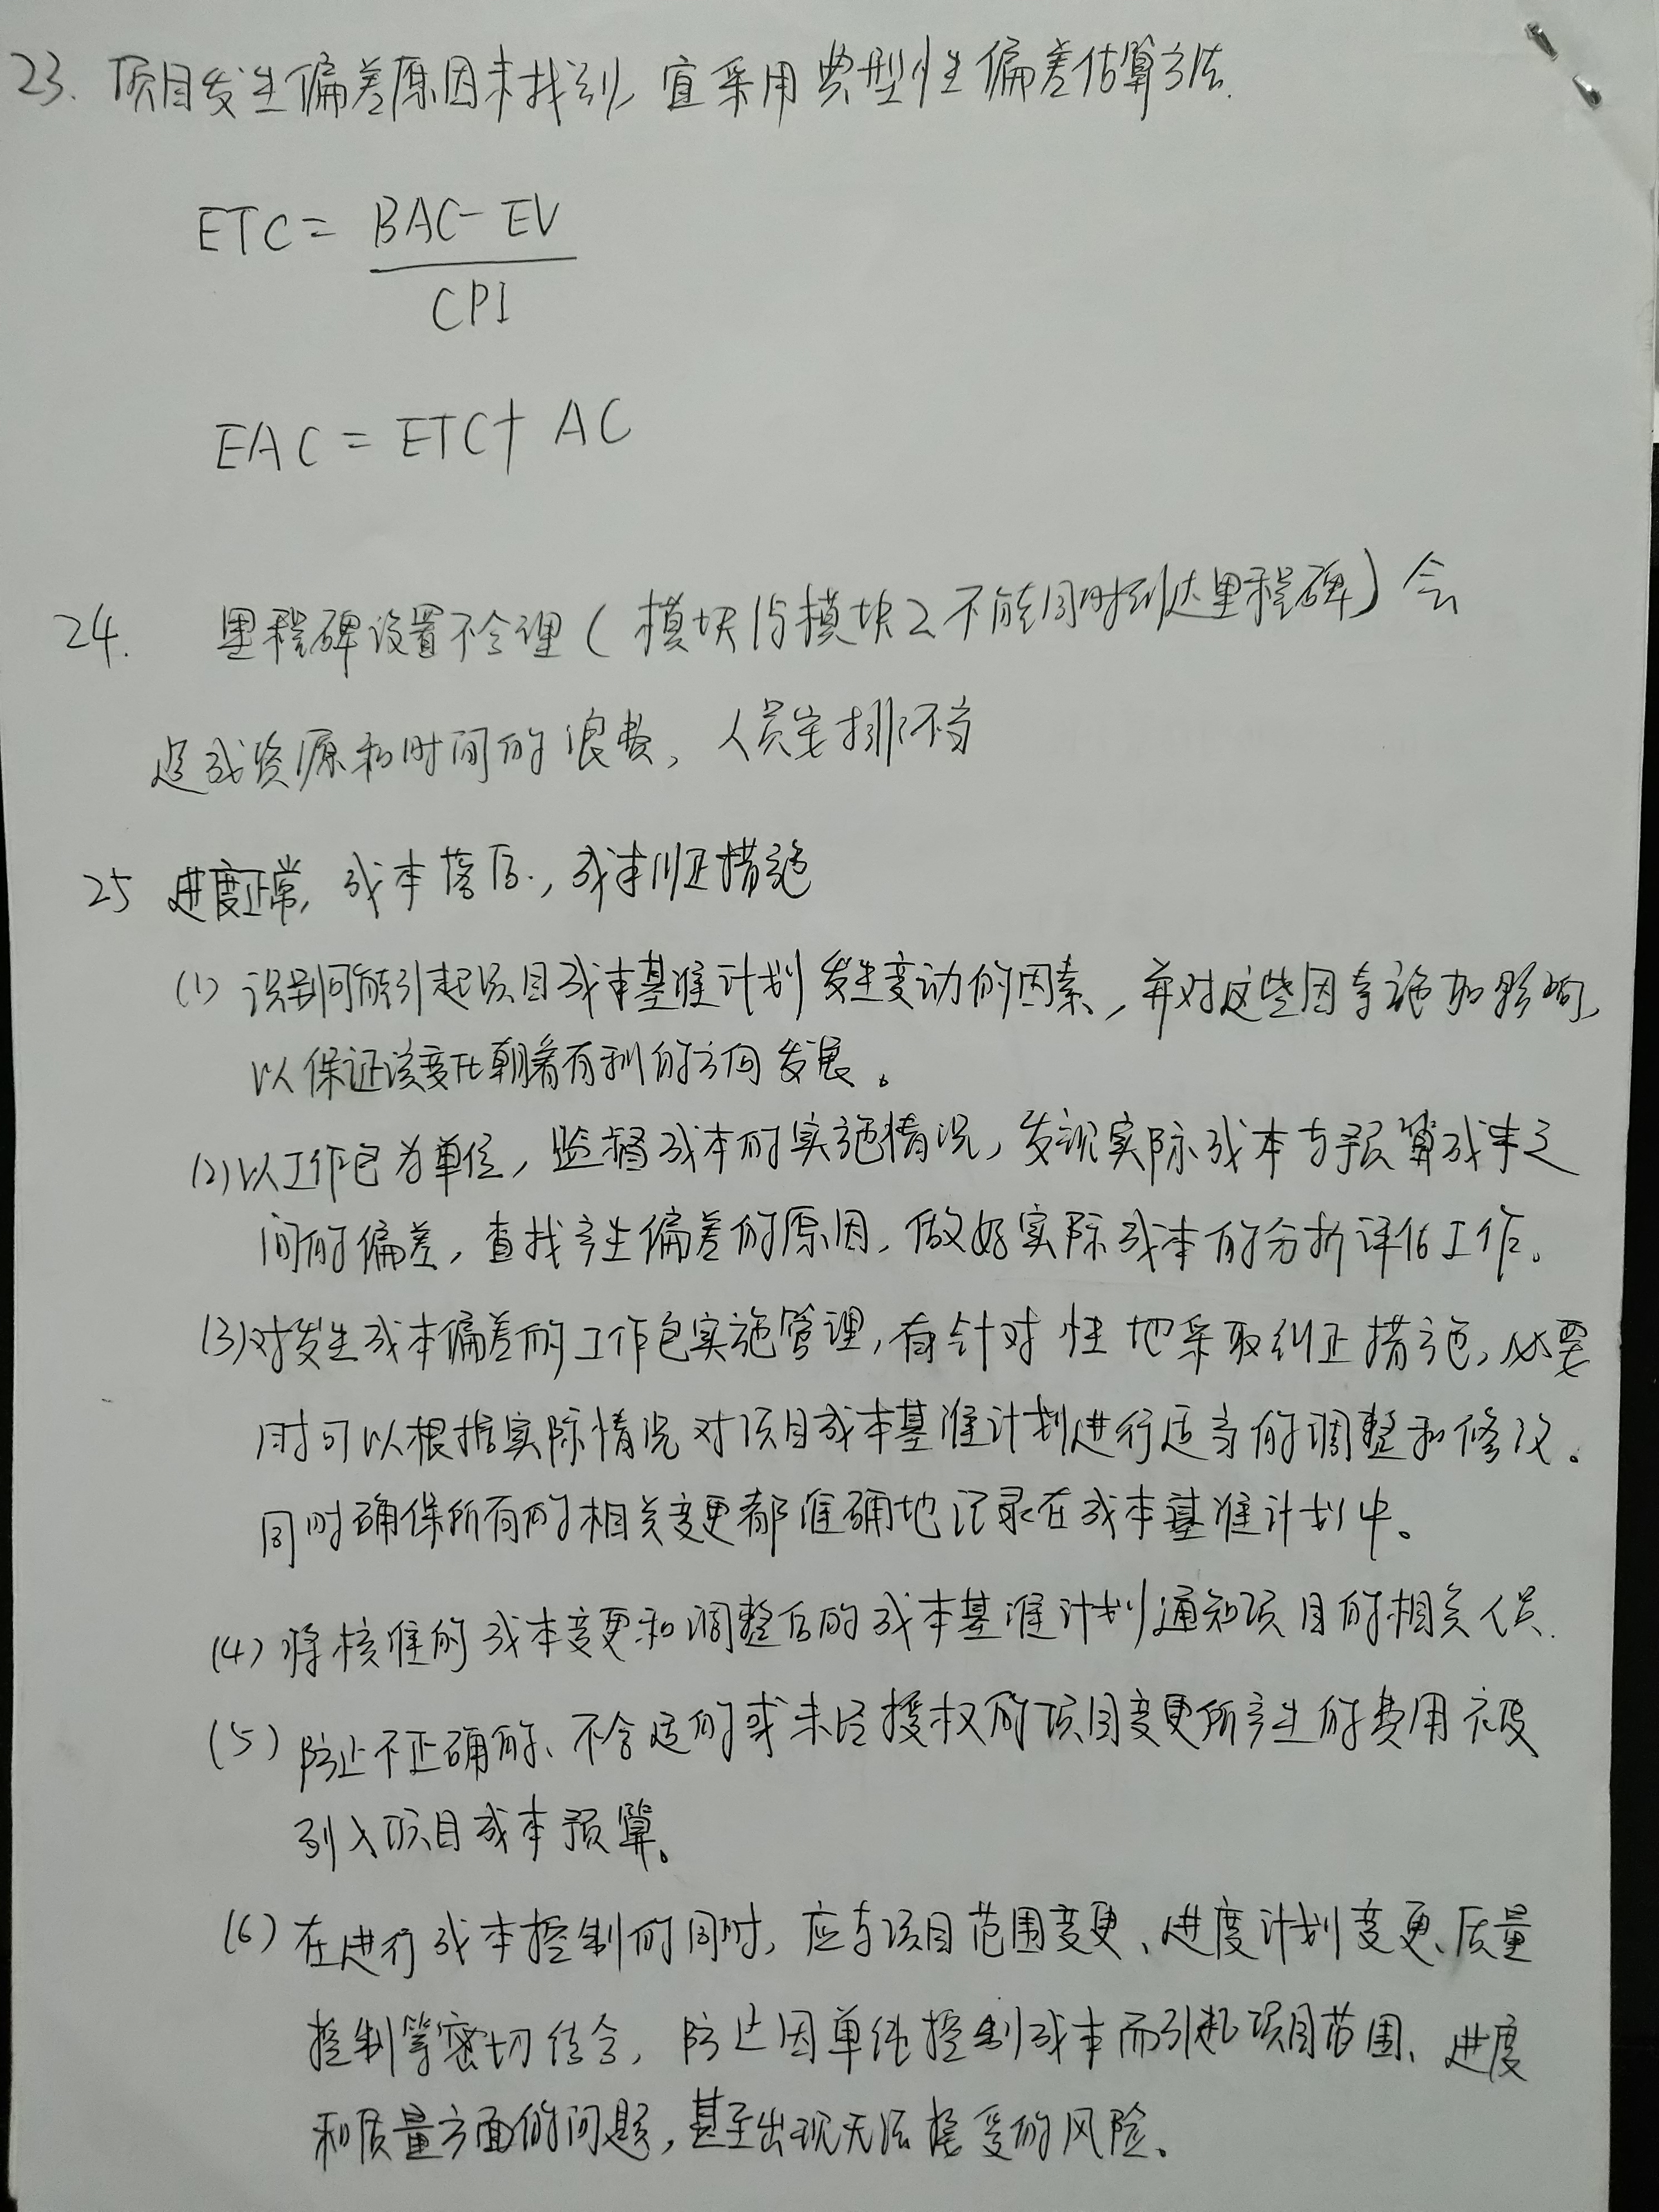 23. 项目发生偏差原因未找到, 宜采用典型性偏差估算方法.
ETC = BAC - EV
CPI
EAC = ETC + AC
24. 里程碑设置不合理 ( 模块1与模块2不能同时到达里程碑 ) 会
造成资源和时间的浪费, 人员安排不当
25 进度正常, 成本落后., 成本纠正措施
(1) 识别可能引起项目成本基准计划发生变动的因素, 并对这些因素施加影响,
以保证该变化朝着有利的方向发展。
(2) 以工作包为单位, 监督成本的实施情况, 发现实际成本与预算成本之
间的偏差, 查找产生偏差的原因, 做好实际成本的分析评估工作。
(3) 对发生成本偏差的工作包实施管理, 有针对性地采取纠正措施, 必要
时可以根据实际情况对项目成本基准计划进行适当的调整和修改。
同时确保所有的相关变更都准确地记录在成本基准计划中。
(4) 将核准的成本变更和调整后的成本基准计划通知项目的相关人员.
(5) 防止不正确的、不合适的或未经授权的项目变更所产生的费用被
列入项目成本预算。
(6) 在进行成本控制的同时, 应与项目范围变更、进度计划变更、质量
控制等密切结合, 防止因单纯控制成本而引起项目范围、进度
和质量方面的问题, 甚至出现无法接受的风险。